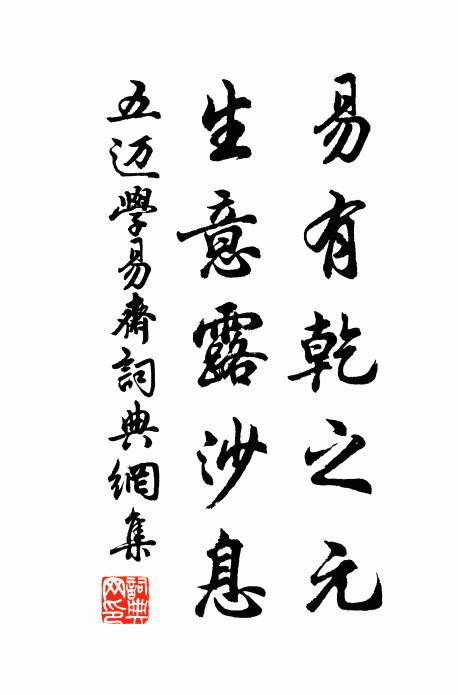 易有乾之元
生意露沙息
五迈學易齋詞典網集
詞典
网印